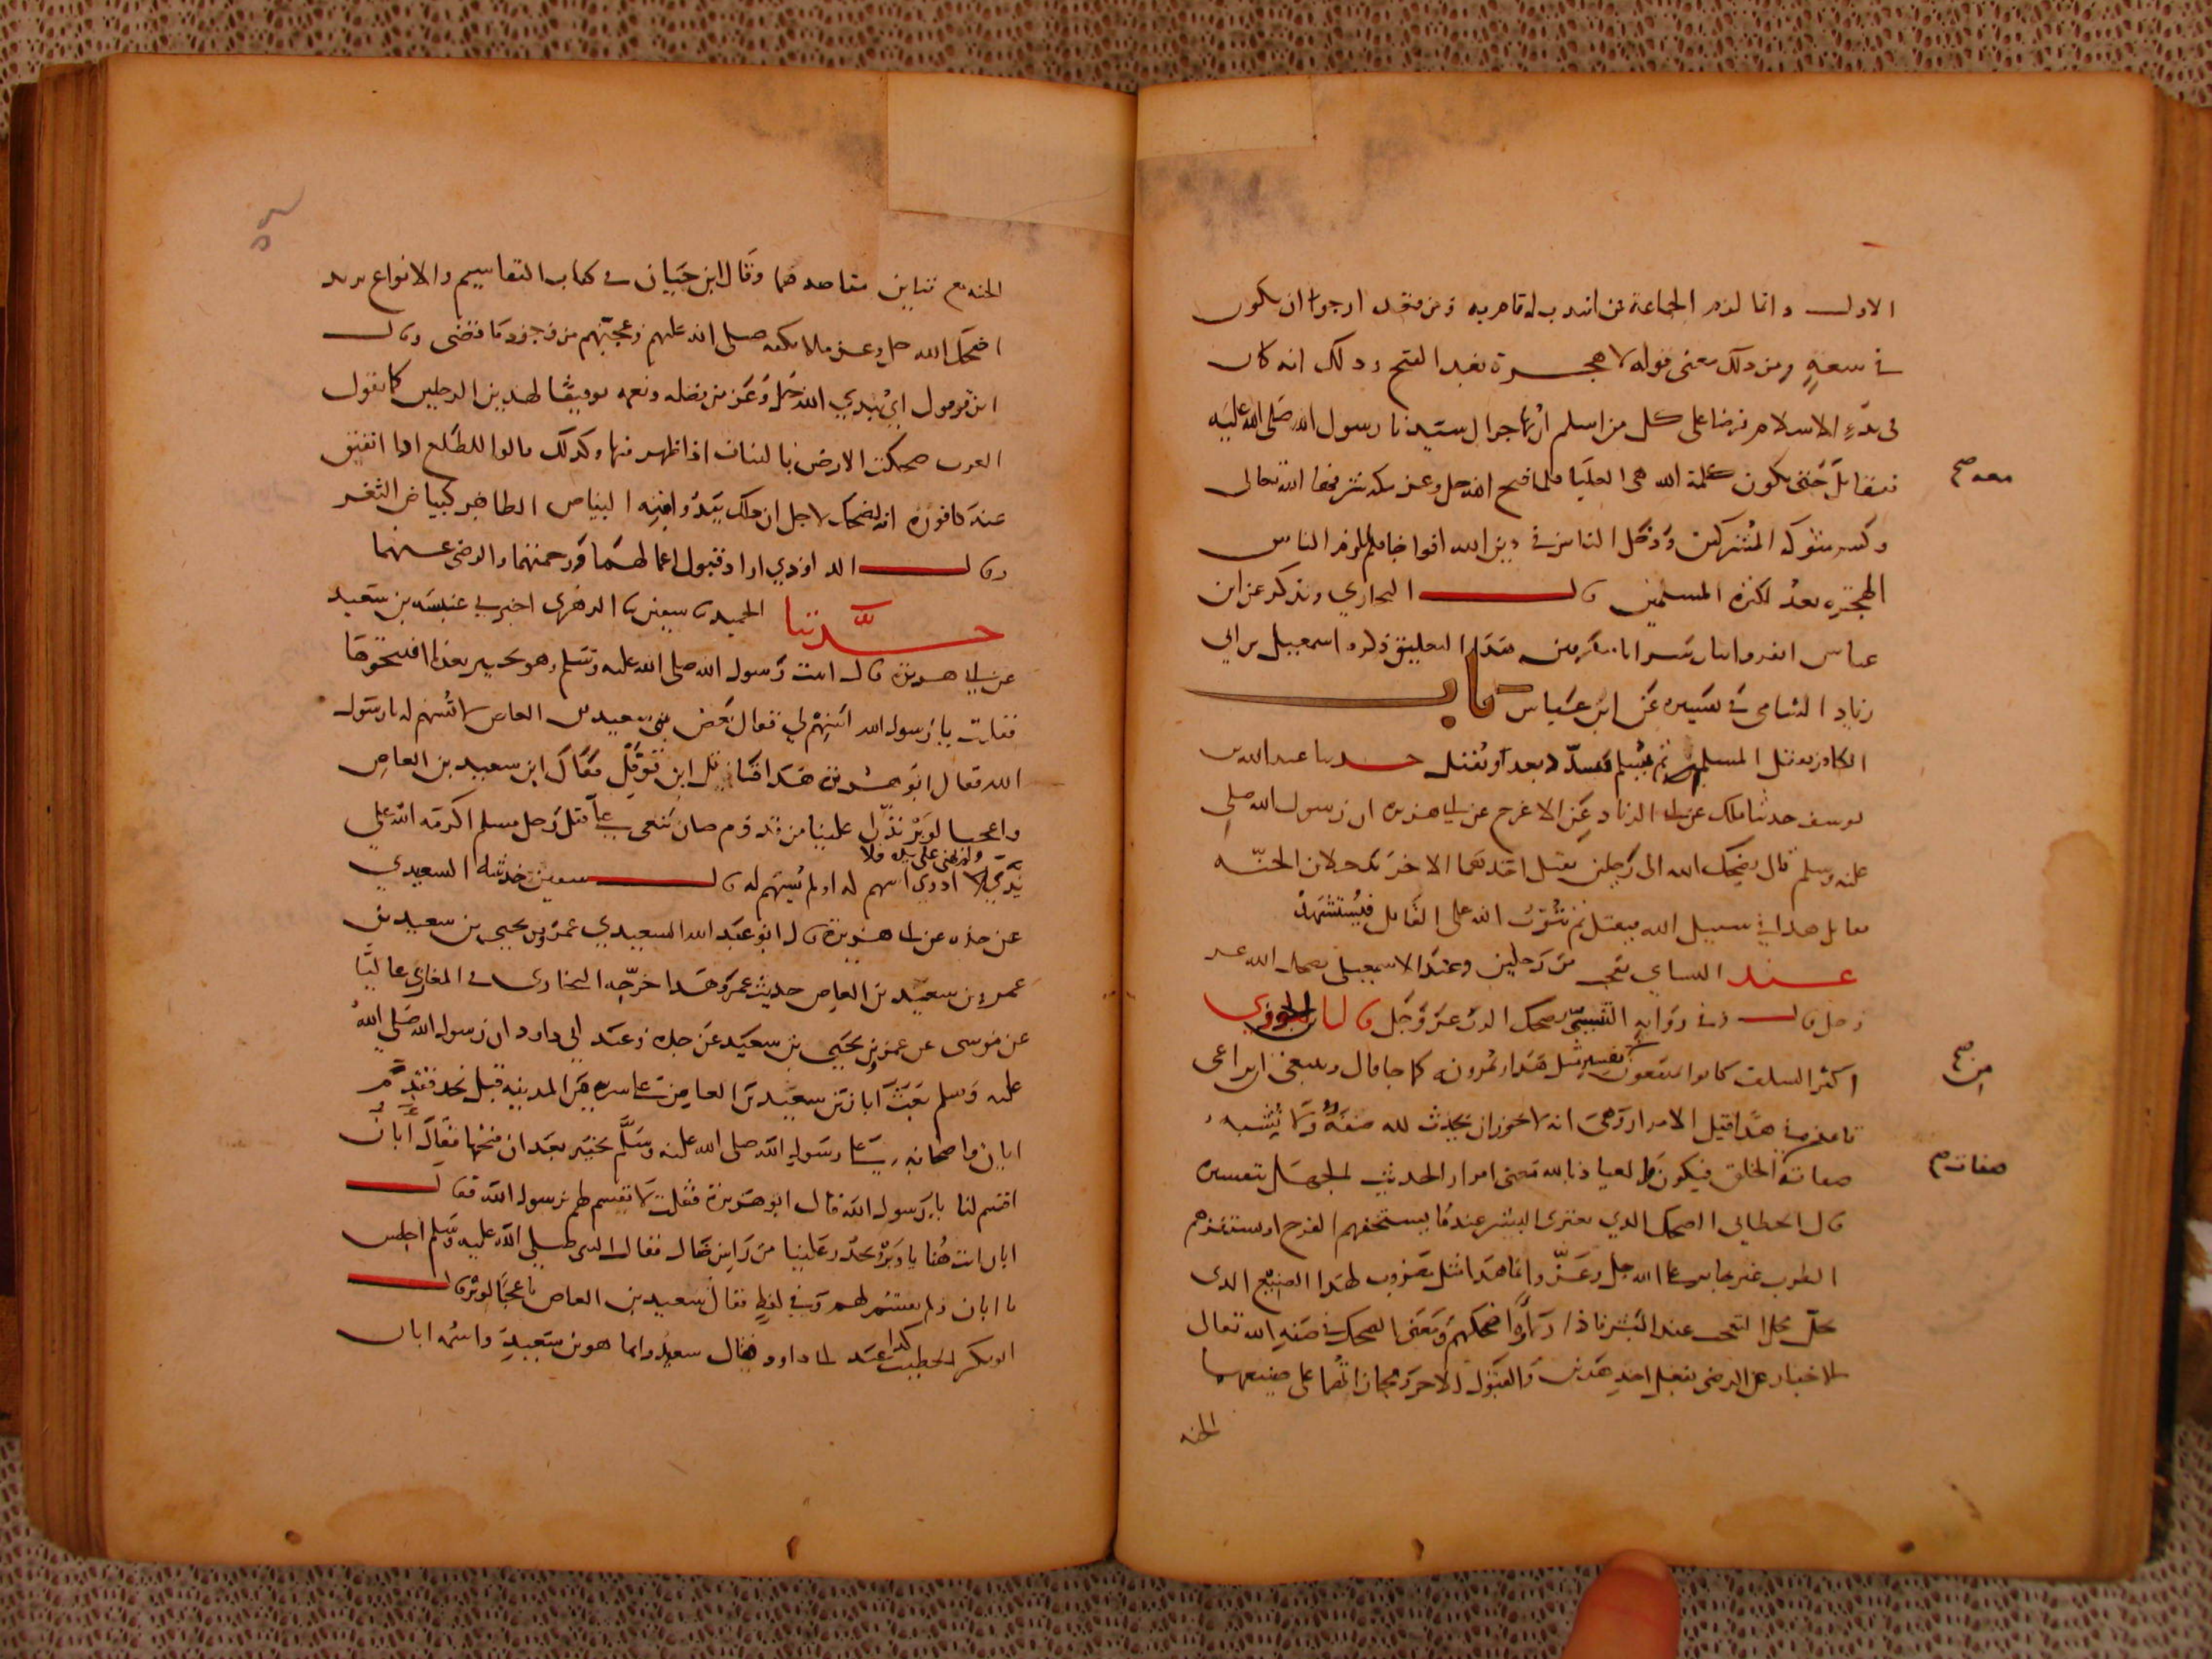 الاول وانما لزم الجماعة من انتدب له قام به ومن قعد ارجوا ان يكون
في سعةٍ ومن ذلك معنى قوله لا هجرة بعد الفتح وذلك انه كان
في بدءِ الاسلام فرضا على كل من اسلم ان يهاجر الى سيدنا رسول الله صلى الله عليه
فيقاتل حتى يكون كلمة الله هى العليا فلما فتح الله جل وعز مكة الله تعالى
وكسر شوكة المشركين ودخل الناس في دين الله افواجا فلم يلزم الناس
الهجرة بعدُ لكثرة المسلمين قال البخاري ويذكر عن ابن
عباس انفروا ثبات سرايا متفرقين هذا التعليق ذكره اسمعيل بن ابي
زياد الشامي في تفسيره عن ابن عباس باب
الكافر يقتل المسلم ثم يُسلم فيسدّد بعد او يُقتل حدثنا عبد الله بن
يوسف حدثنا ملك عن ابي الزناد عن الاعرج عن ابي هريره ان رسول الله صلى
عليه وسلم قال يضحك الله الى رجلين يقتل احدهما الاخر يدخلان الجنّة
يقاتل هذا في سبيل الله فيقتل ثم يتوب الله على القاتل فيُستشهد
عند النساي من رجلين وعند الاسمعيلي
وفي رواية يضحك الرب عز وجل قال ابن الجوزي
اكثر السلف كانوا يمتنعون تفسير مثل هذا ويمرونه كما جا قال وينبغي ان يراعى
قاعدة في هذا قبل الامرار وهى انه لا يجوز ان يحدث لله صفةٌ ولا يُشبه
صفاته الخلق فيكون والعياذ بالله معنى امرار الحديث الجهل بتفسيره
قال الخطابي الضحك الذي يعتري البشر عندما يستخفهم الفرح او يستفزهم
الطرب غير جايز على الله جل وعزّ وانما هذا مثل مضروب لهذا الصنيع الذي
يحل محل التعجب عند البشر فاذا رأوه اضحكهم ومعنى الضحك في صفة الله تعالى
الاخبار عن الرضى بفعل احد هذين والقبول للاخر ومجازاتهما على صنيعهما
الجنة
معه صح
من صح
صفاته صح
الجنة مع تباين مقاصدهما وقال ابن حبان في كتاب التقاسيم والانواع يريد
اضحك الله جل وعز ملائكته صلى الله عليهم وعجبهم من وجود ما قضى وقال
ابن فورك اي يُبدي الله جل وعز من فضله ونعمه توفيقا لهذين الرجلين كما تقول
العرب ضحكت الارض بالنبات اذا ظهر فيها وكذلك قالوا للطلع اذا انفتق
عنه كافوره انه يضحك لاجل ان ذلك يبدُو منه البياض الظاهر كبياض الثغر
وقال الداودي اراد قبول اعمالهما ورحمتهما والرضى عنهما
حدَّثنا الحميدي سفين الزهري اخبرني عنبسة بن سعيد
عن ابي هريرة قال اتيت رسول الله صلى الله عليه وسلم وهو بخيبر بعدما افتتحوها
فقلت يا رسول الله اسهم لي فقال بعض بني سعيد بن العاص لا تُسهم له يا رسول
الله فقال ابو هريرة هذا قاتل ابن قوقلٍ فقال ابن سعيد بن العاص
واعجبا لوبرٍ تدلى علينا من قدوم ضان ينعى علي قتل رجل مسلم اكرمه الله على
يديّ ولم يهني على يديه فلا ادري اسهم له او لم يُسهم له قال سفين حدثنيه السعيدي
عن جده عن ابي هريرة قال ابو عبد الله السعيدي عمرو بن يحيى بن سعيد بن
عمرو بن سعيد بن العاص حديث عمرو هذا خرّجه البخاري في المغازي عاليًا
عن موسى عن عمرو بن يحيى بن سعيد عن جده وعند ابي داود ان رسول الله صلى الله
عليه وسلم بعث ابان بن سعيد بن العاص على سرية من المدينه قبل نجد فقدم
ابان واصحابه على رسول الله صلى الله عليه وسلم بخيبر بعد ان فتحها فقال أبان
اقسم لنا يا رسول الله قال ابو هريرة فقلت لا تقسم لهم يرسول الله فقال
ابان انت هُنا يا وبرُ تحدّر علينا من راس ضال فقال النبي صلى الله عليه وسلم اجلس
يا ابان ولم يقسم لهم وفي لفظٍ فقال سعيد بن العاص يا عجبًا لوبر قال
ابو بكر الخطيب كذا عند ابي داود فقال سعيد وانما هو بن سعيد واسمه ابان